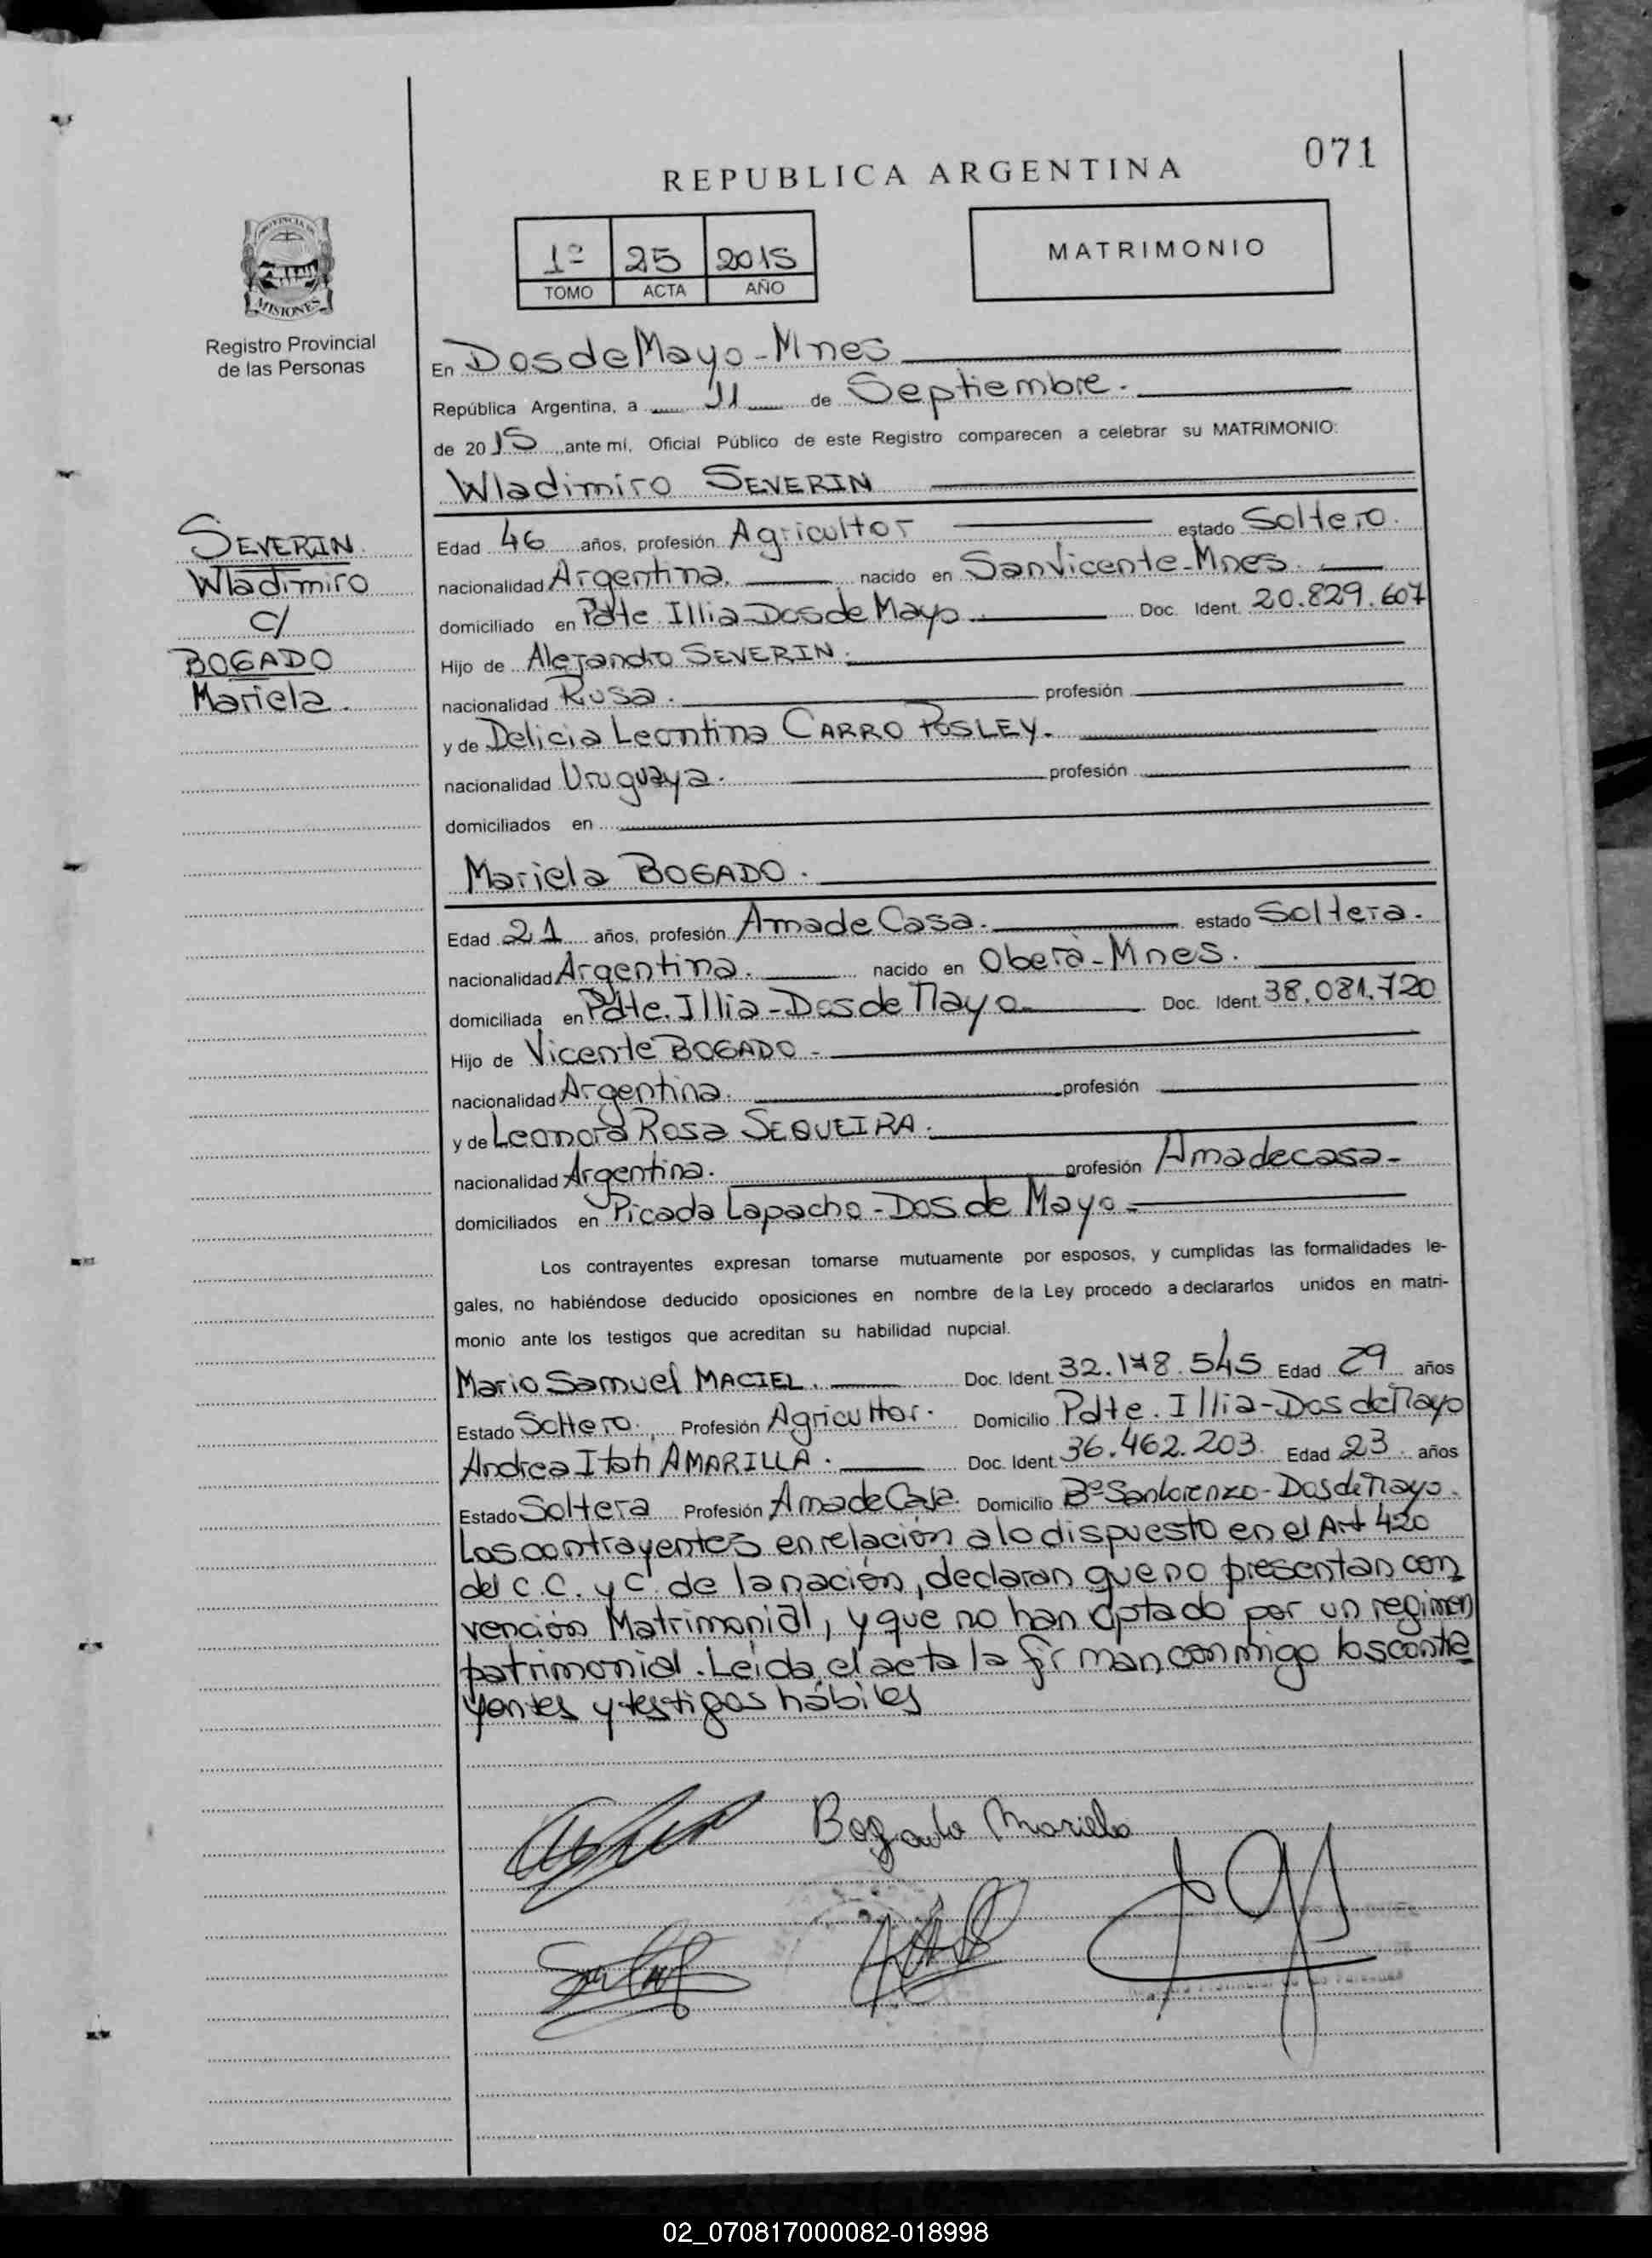 071
REPUBLICA ARGENTINA
1º 25 2015
TOMO ACTA AÑO
MATRIMONIO
PROVINCIA DE
MISIONES
Registro Provincial
de las Personas
En Dos de Mayo - Mnes
República Argentina, a 11 de Septiembre.
de 2015 ante mí, Oficial Público de este Registro comparecen a celebrar su MATRIMONIO:
Wladimiro SEVERIN
SEVERIN
Wladimiro
c/
BOGADO
Mariela.
Edad 46 años, profesión Agricultor estado Soltero.
nacionalidad Argentina. nacido en San Vicente - Mnes.
domiciliado en Pdte. Illia - Dos de Mayo Doc. Ident. 20.829.607
Hijo de Alejandro SEVERIN.
nacionalidad Rusa. profesión
y de Delicia Leontina CARRO POSLEY.
nacionalidad Uruguaya. profesión
domiciliados en
Mariela BOGADO.
Edad 21 años, profesión Ama de Casa. estado Soltera.
nacionalidad Argentina. nacido en Oberà - Mnes.
domiciliada en Pdte. Illia - Dos de Mayo Doc. Ident. 38.081.720
Hijo de Vicente BOGADO -
nacionalidad Argentina. profesión
y de Leonora Rosa SEQUEIRA.
nacionalidad Argentina. profesión Ama de casa -
domiciliados en Picada Lapacho - Dos de Mayo -
Los contrayentes expresan tomarse mutuamente por esposos, y cumplidas las formalidades le-
gales, no habiéndose deducido oposiciones en nombre de la Ley procedo a declararlos unidos en matri-
monio ante los testigos que acreditan su habilidad nupcial.
Mario Samuel MACIEL. Doc. Ident. 32.178.545 Edad 29 años
Estado Soltero. Profesión Agricultor. Domicilio Pdte. Illia - Dos de Mayo
Andrea Itati AMARILLA. Doc. Ident. 36.462.203. Edad 23 años
Estado Soltera Profesión Ama de Casa. Domicilio Bº San Lorenzo - Dos de Mayo.
Los contrayentes en relación a lo dispuesto en el Art 420
del C.C. y C. de la nación, declaran que no presentan con
vención Matrimonial, y que no han optado por un regimen
patrimonial. Leída el acta la firman conmigo los contra
yentes y testigos hábiles
Bogado Mariela
02_070817000082-018998